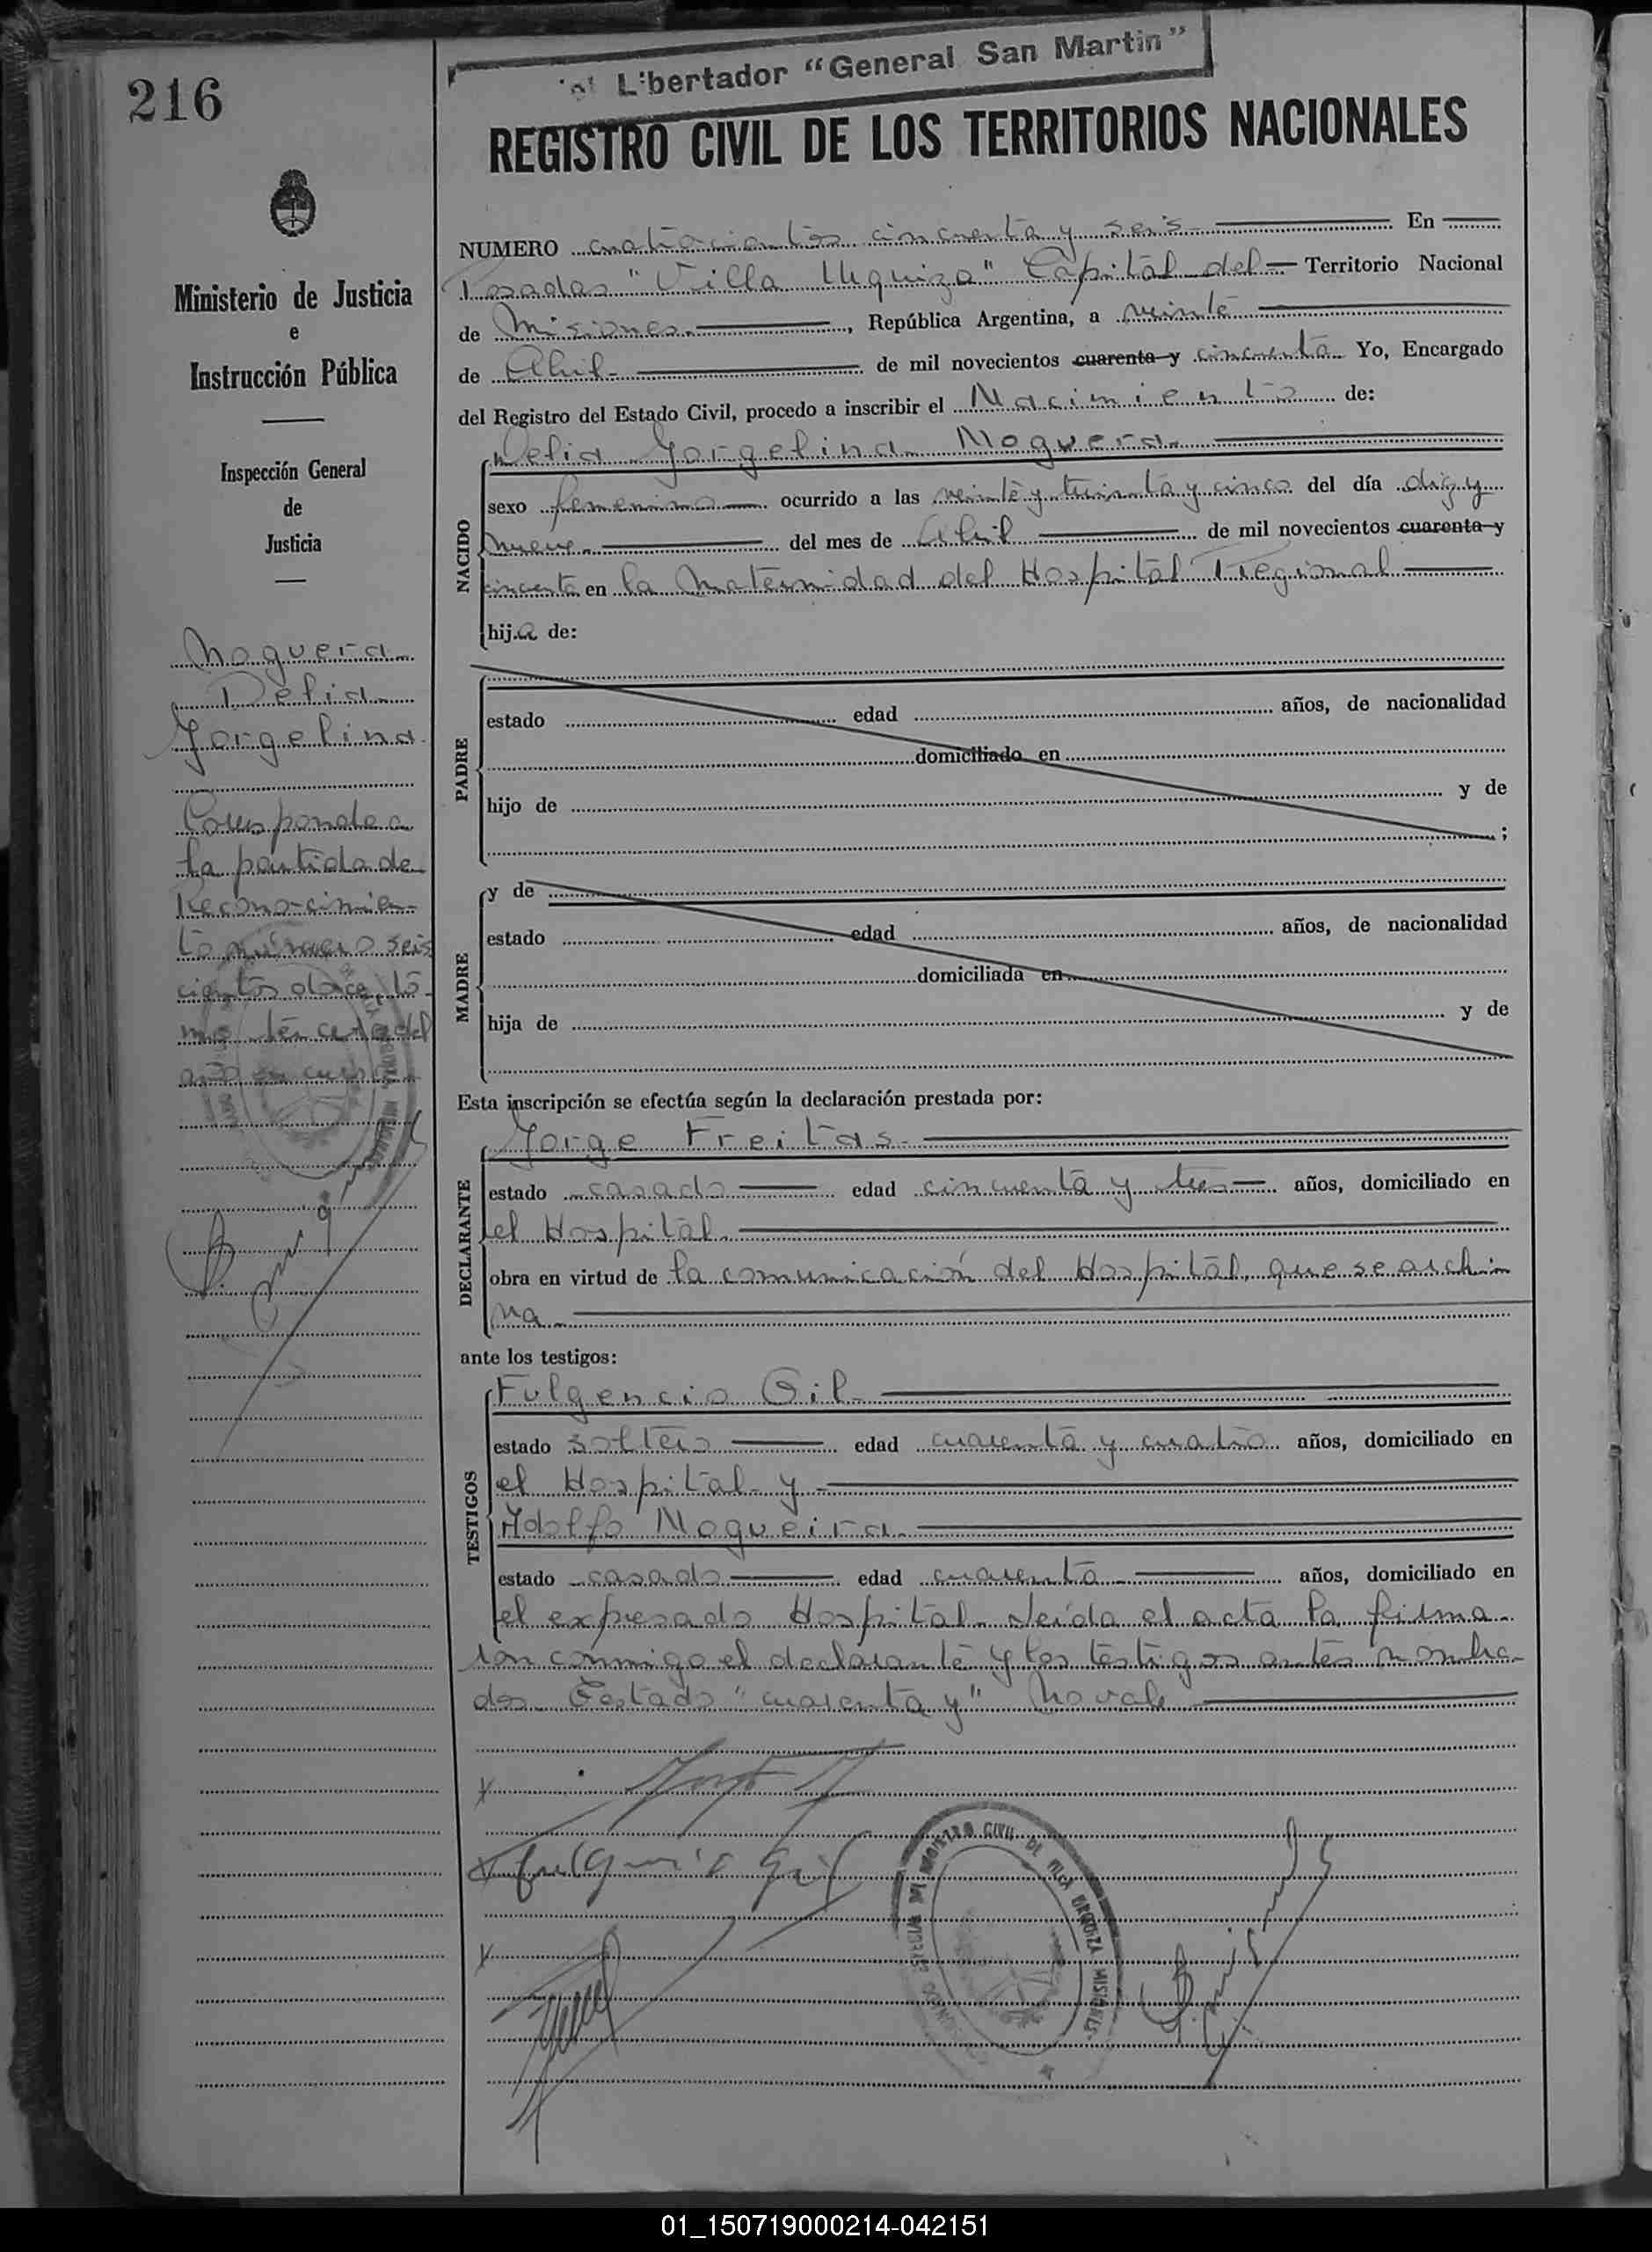 216
Libertador "General San Martin"
REGISTRO CIVIL DE LOS TERRITORIOS NACIONALES
Ministerio de Justicia
e
Instrucción Pública
Inspección General
de
Justicia
Noguera
Delia
Jorgelina
Corresponde a
la partida de
Reconocimien-
to número seis
cientos doce, to-
mo tercero del
año en curso
NUMERO cuatrocientos cincuenta y seis En
Posadas "Villa Urquiza" Capital del Territorio Nacional
de Misiones, República Argentina, a veinte
de Abril de mil novecientos cuarenta y cincuenta Yo, Encargado
del Registro del Estado Civil, procedo a inscribir el Nacimiento de:
NACIDO
Delia Jorgelina Noguera
sexo femenino ocurrido a las veinte y treinta y cinco del día diez y
nueve del mes de Abril de mil novecientos cuarenta y
cincuenta en la Maternidad del Hospital Regional
hija de:
PADRE
estado edad años, de nacionalidad
domiciliado en
hijo de y de
;
MADRE
y de
estado edad años, de nacionalidad
domiciliada en
hija de y de
Esta inscripción se efectúa según la declaración prestada por:
DECLARANTE
Jorge Freitas
estado casado edad cincuenta y tres años, domiciliado en
el Hospital
obra en virtud de la comunicación del Hospital, que se archi
va
ante los testigos:
TESTIGOS
Fulgencio Gil
estado soltero edad cuarenta y cuatro años, domiciliado en
el Hospital y
Adolfo Nogueira
estado casado edad cuarenta años, domiciliado en
el expresado Hospital. Leída el acta la firma-
ron conmigo el declarante y los testigos antes nombra-
dos. Testado "cuarenta y" No vale
Fulgencio Gil
REGISTRO CIVIL DE VILLA URQUIZA MISIONES
01_150719000214-042151